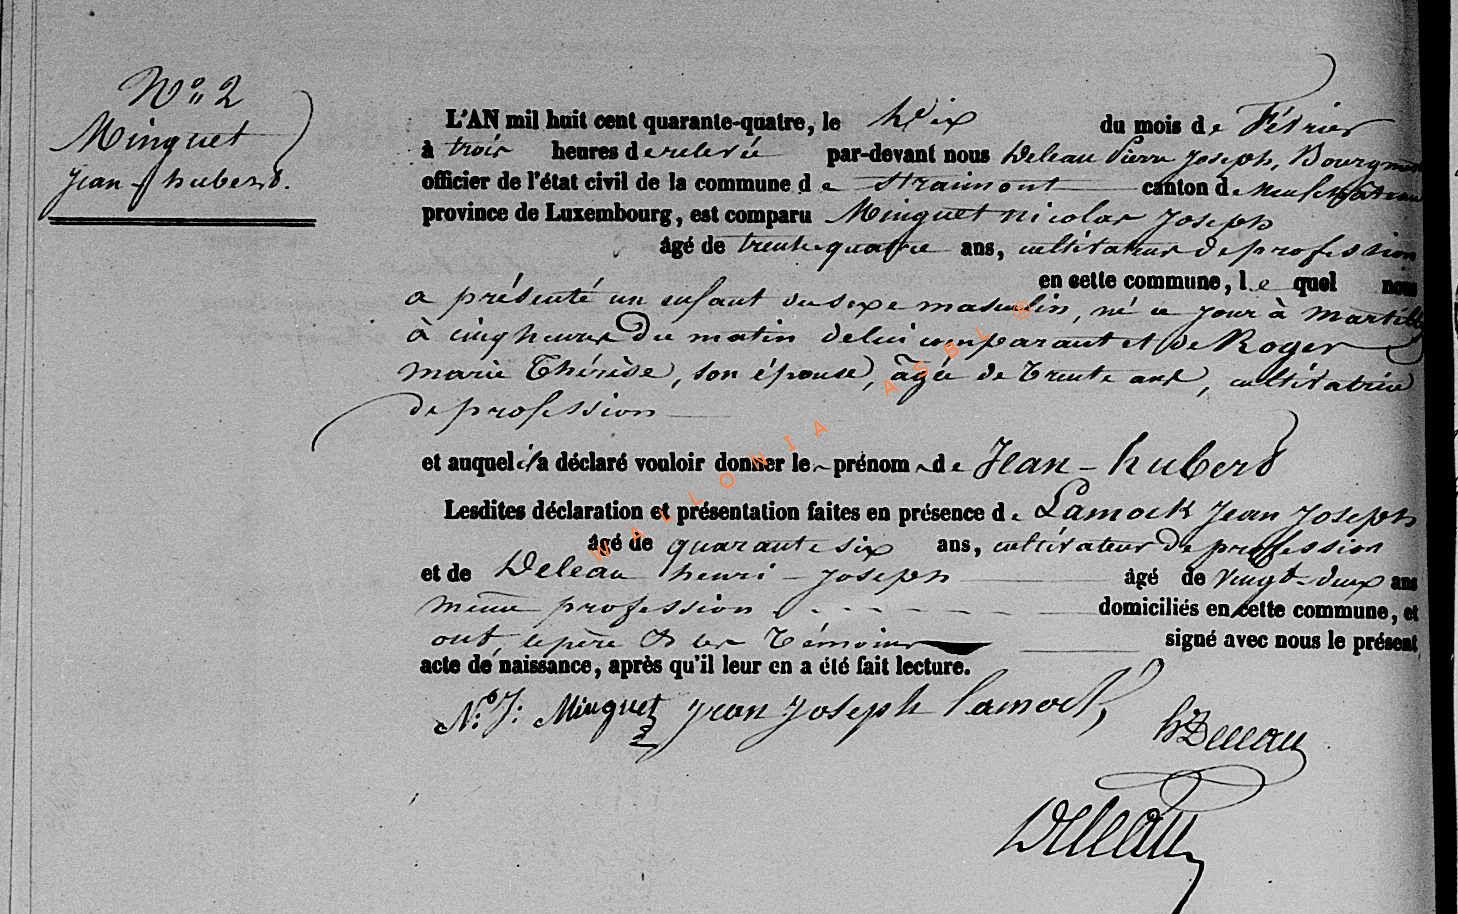 N° 2
Minguet
Jean-hubert.
L'AN mil huit cent quarante-quatre, le Dix du mois de Février
à trois heures de relevée par-devant nous Deleau Pierre Joseph, Bourgmestre
officier de l'état civil de la commune de Straimont canton de neufchâteau
province de Luxembourg, est comparu Minguet nicolas Joseph
âgé de trente quatre ans, cultivateur de profession
en cette commune, le quel nous
a présenté un enfant du sexe masculin, né ce jour à martilly
à cinq heures du matin de lui comparant et de Roger
marie Thérèse, son épouse, âgée de Trente ans, cultivatrice
de profession
et auquel il a déclaré vouloir donner le prénom de Jean-hubert
Lesdites déclaration et présentation faites en présence de Lamock Jean Joseph
âgé de quarante six ans, cultivateur de profession
et de Deleau henri-Joseph âgé de vingt-deux ans
même profession domiciliés en cette commune, et
ont, le père & les Témoins signé avec nous le présent
acte de naissance, après qu'il leur en a été fait lecture.
N: J: Minguet Jean Joseph Lamock, h Deleau
Deleau
WALLONIA ASBL ©